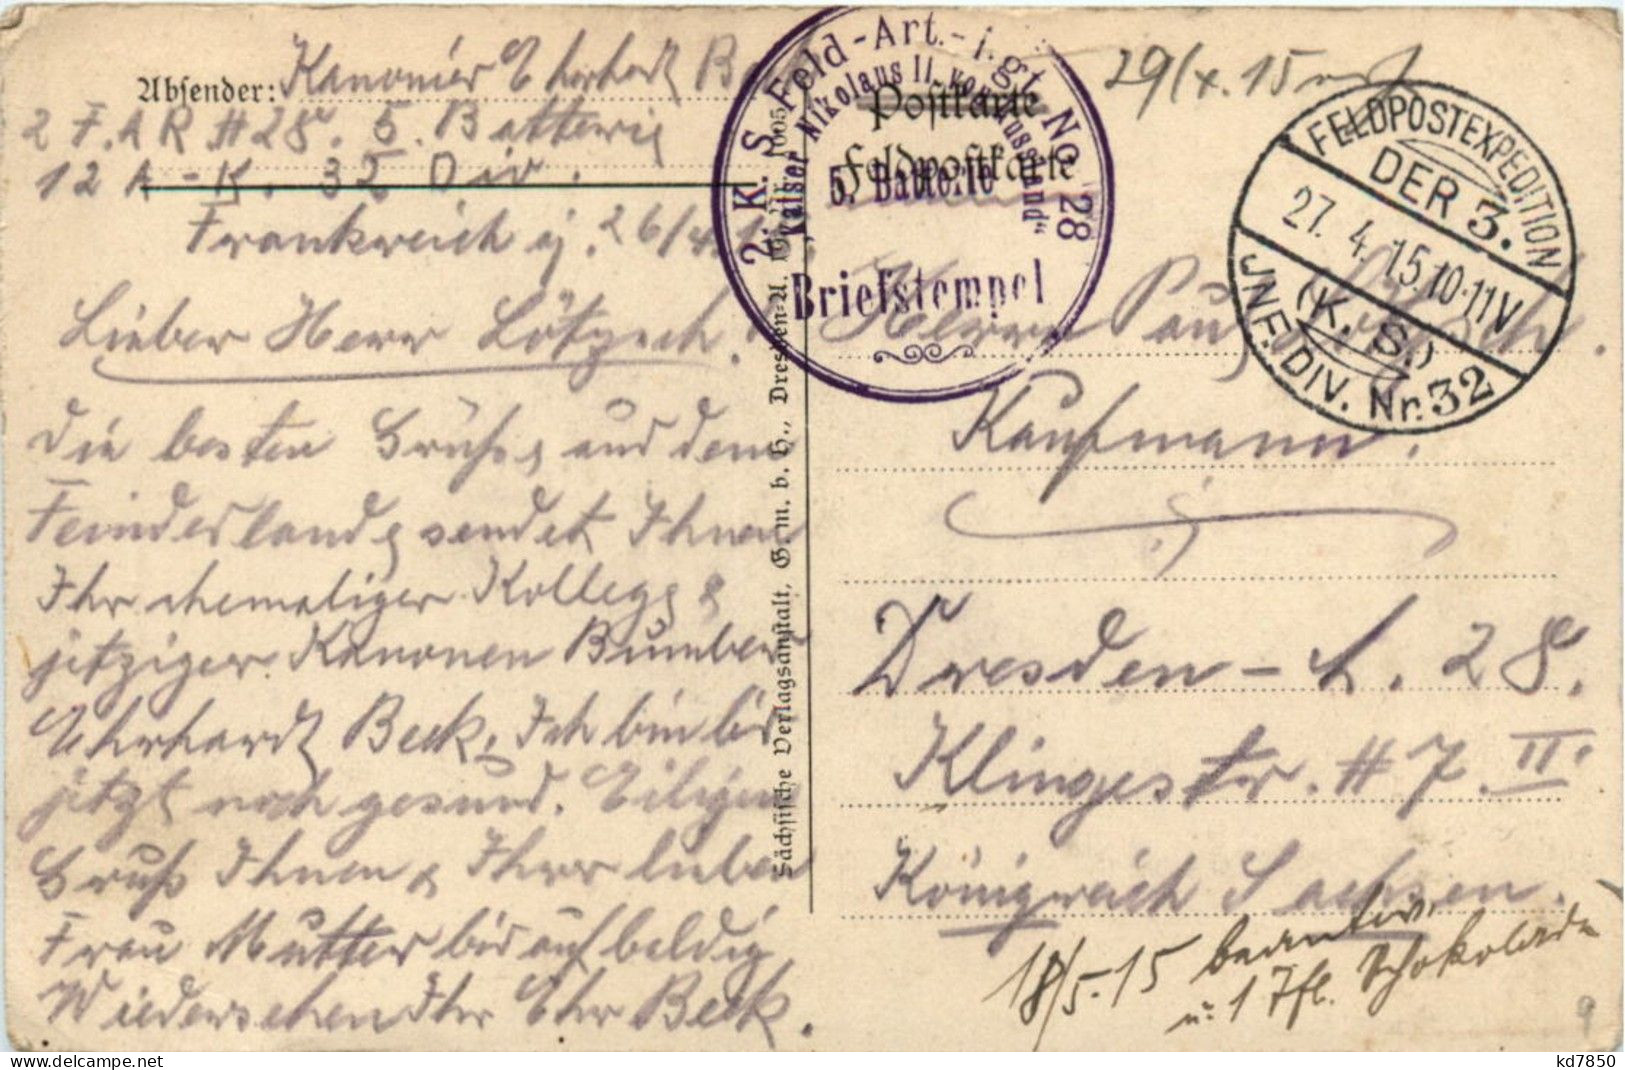 Absender: Kanonier Ehrhardt Beck
2 F.A R # 28. 5. Batterie
12 A-K. 32 Div.
Frankreich, 26/4.
Lieber Herr Lötzsch.
Die besten Grüße aus dem
Feindesland sendet Ihnen
Ihr ehemaliger Kollege &
jetziger Kanonen Bumber
Ehrhardt Beck, Ich bin bis
jetzt noch gesund. Eiligen
Gruß Ihnen & Ihrer lieben
Frau Mutter bis auf baldig
Wiedersehen Ihr Ehr Beck.
Sächsische Verlagsanstalt, G. m. b. H., Dresden-A.
2. K. S. Feld-Art.-i.gt. No. 28
"Kaiser Nikolaus II. von Russland"
5. Batterie
Briefstempel
Postkarte
Feldpostkarte
29/4.15
FELDPOSTEXPEDITION
DER 3.
27. 4. 15. 10-11V
(K. S.)
JNF. DIV. Nr. 32
Herrn Paul Lötzsch.
Kaufmann.
Dresden - A. 28.
Klingestr. # 7. II.
Königreich Sachsen.
18/5.15 beantw.
u. 1 Tfl. Schokolade
9
www.delcampe.net
kd7850